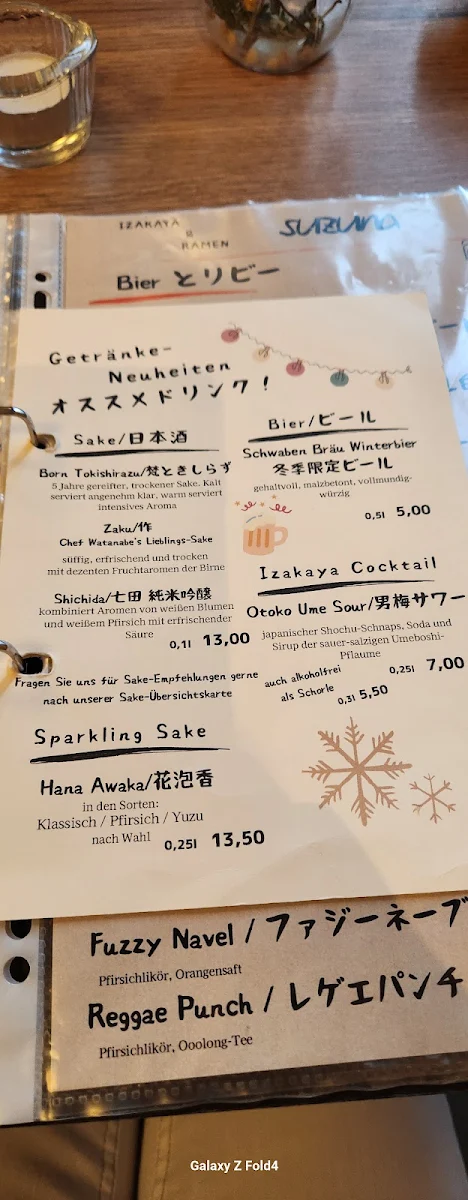 IZAKAYA
&
RAMEN
SUZUNO
Bier とりビー
Getränke-
Neuheiten
オススメドリンク!
Sake/日本酒
Born Tokishirazu/梵ときしらず
5 Jahre gereifter, trockener Sake. Kalt
serviert angenehm klar, warm serviert
intensives Aroma
Zaku/作
Chef Watanabe's Lieblings-Sake
süffig, erfrischend und trocken
mit dezenten Fruchtaromen der Birne
Shichida/七田 純米吟醸
kombiniert Aromen von weißen Blumen
und weißem Pfirsich mit erfrischender
Säure
0,1l 13,00
Fragen Sie uns für Sake-Empfehlungen gerne
nach unserer Sake-Übersichtskarte
Sparkling Sake
Hana Awaka/花泡香
in den Sorten:
Klassisch / Pfirsich / Yuzu
nach Wahl
0,25l 13,50
Bier/ビール
Schwaben Bräu Winterbier
冬季限定ビール
gehaltvoll, malzbetont, vollmundig-
würzig
0,5l 5,00
Izakaya Cocktail
Otoko Ume Sour/男梅サワー
japanischer Shochu-Schnaps, Soda und
Sirup der sauer-salzigen Umeboshi-
Pflaume
0,25l 7,00
auch alkoholfrei
als Schorle 0,3l 5,50
Fuzzy Navel / ファジーネーブ
Pfirsichlikör, Orangensaft
Reggae Punch / レゲエパンチ
Pfirsichlikör, Ooolong-Tee
Galaxy Z Fold4